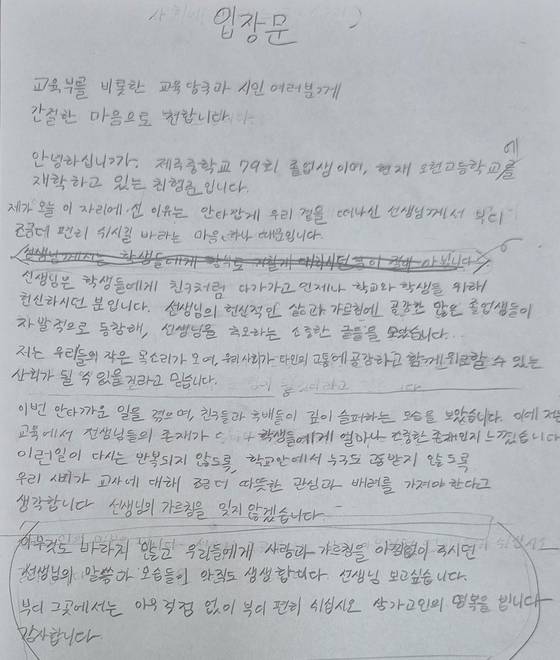 입장문
교육부를 비롯한 교육 당국과 시민 여러분께
간절한 마음으로 전합니다
안녕하십니까. 제주중학교 79회 졸업생이며, 현재 오현고등학교를에
재학하고 있는 입니다.
제가 오늘 이 자리에 선 이유는 안타깝게 우리 곁을 떠나신 선생님께서 부디
조금더 편히 쉬시길 바라는 마음 하나 때문입니다.
선생님께서는 학생들에게 함부로 아닙니다
선생님은 학생들에게 친구처럼 다가가고 언제나 학교와 학생들을 위해
헌신하시던 분입니다. 선생님의 헌신적인 삶과 가르침에 공감한 많은 졸업생들이
자발적으로 동참해, 선생님을 추모하는 소중한 글들을 모았습니다..
저는 우리들의 작은 목소리가 모여, 우리사회가 타인의 고통에 공감하고 함께 위로할 수 있는
사회가 될 수 있을거라고 믿습니다.
이번 안타까운 일을 겪으며, 친구들과 후배들이 깊이 슬퍼하는 모습을 보았습니다. 이에 저는
교육에서 선생님들의 존재가 학생들에게 얼마나 존재인지 느꼈습니다
이런일이 다시는 반복되지 않도록, 학교안에서 누구도 고통받지 않도록
우리 사회가 교사에 대해 좀더 따뜻한 관심과 배려를 가져야 한다고
생각합니다 선생님의 가르침을 잊지 않겠습니다.
아무것도 바라지 않고 우리들에게 사랑과 가르침을 아낌없이 주시던
선생님의 말씀과 모습들이 아직도 생생합니다 선생님 보고싶습니다.
부디 그곳에서는 아무 걱정 없이 부디 편히 쉬십시오 삼가고인의 명복을 빕니다
감사합니다